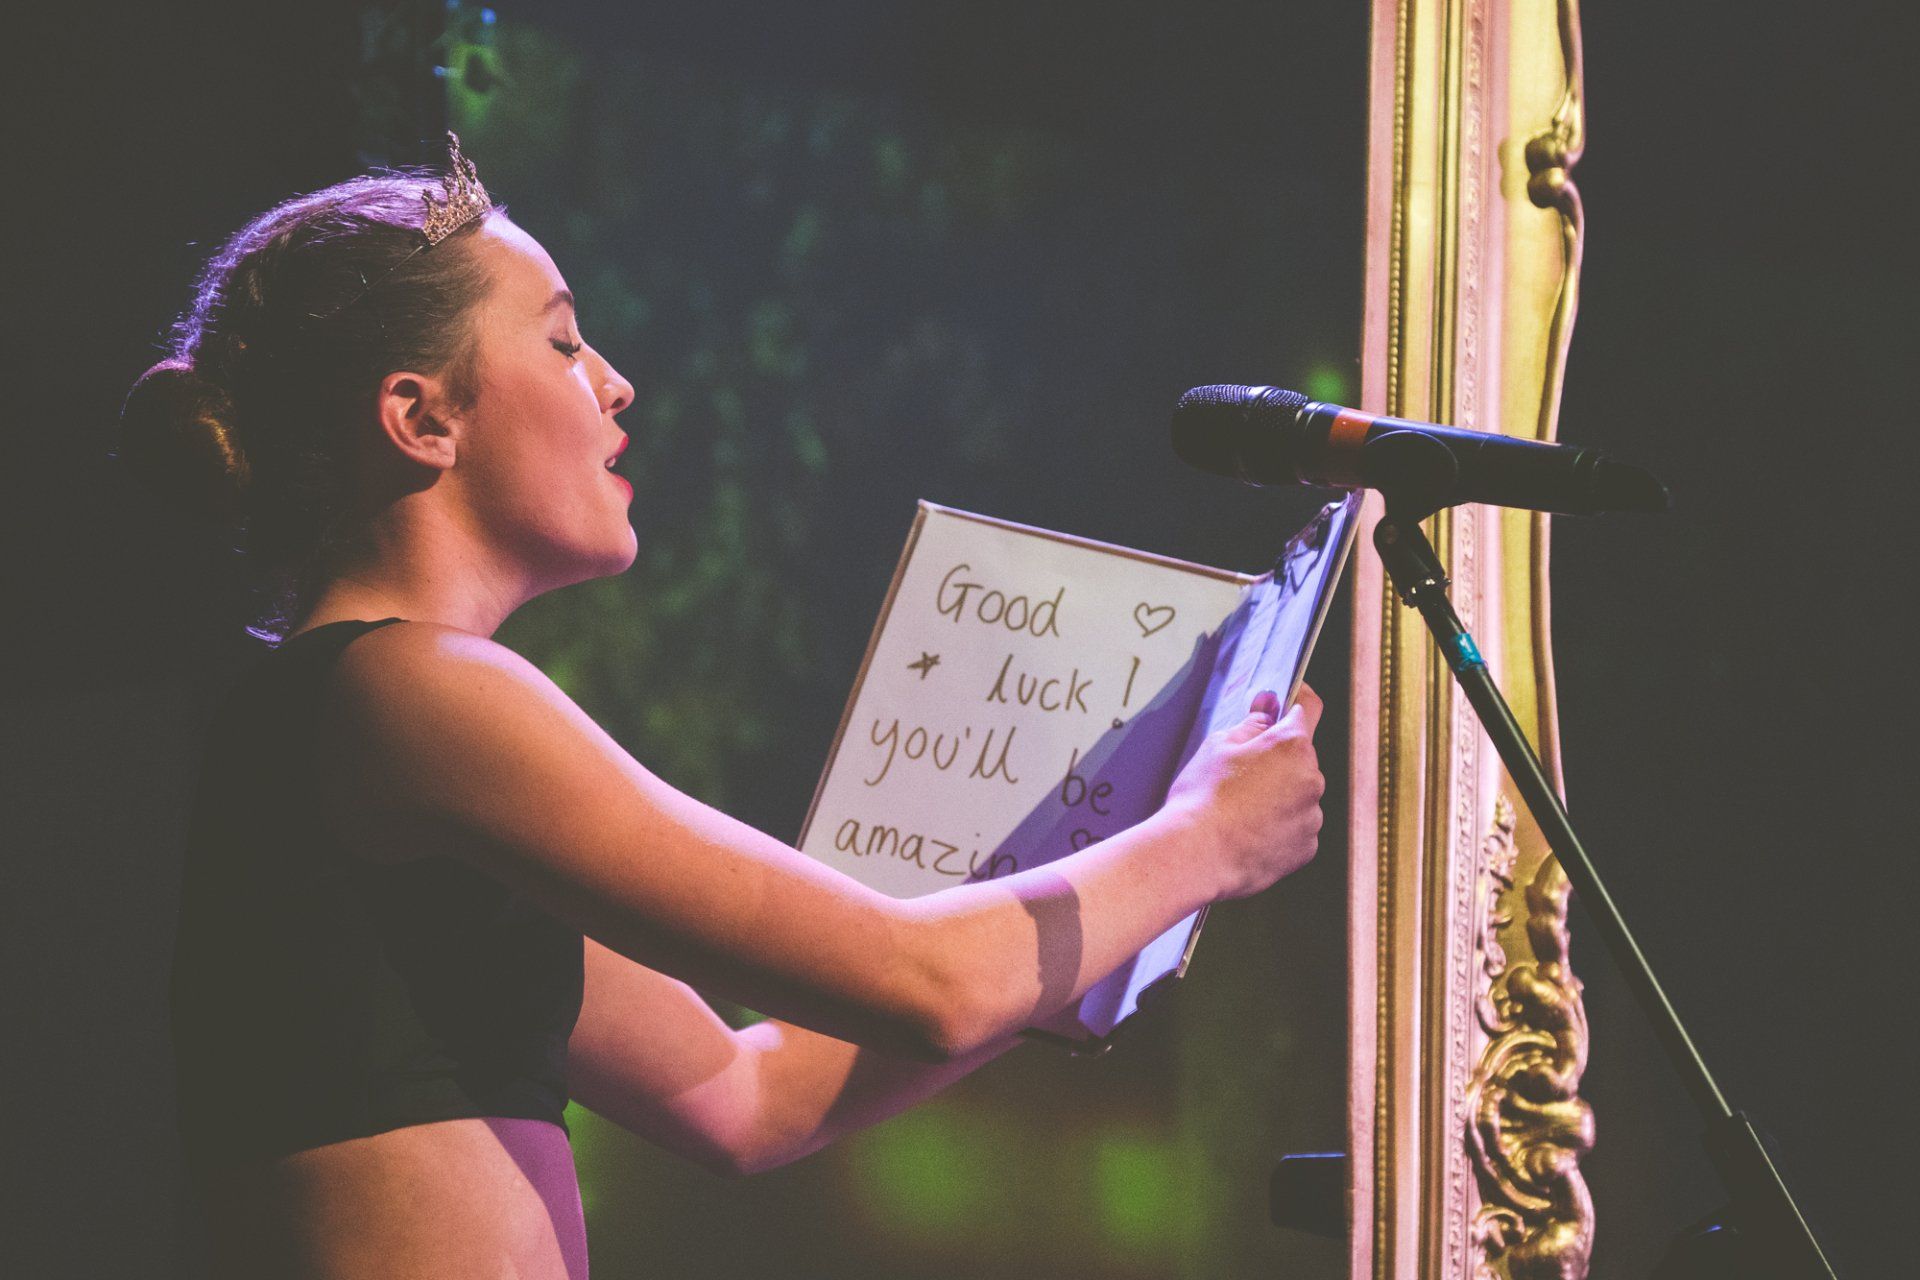 Good
luck!
you'll be
amazin